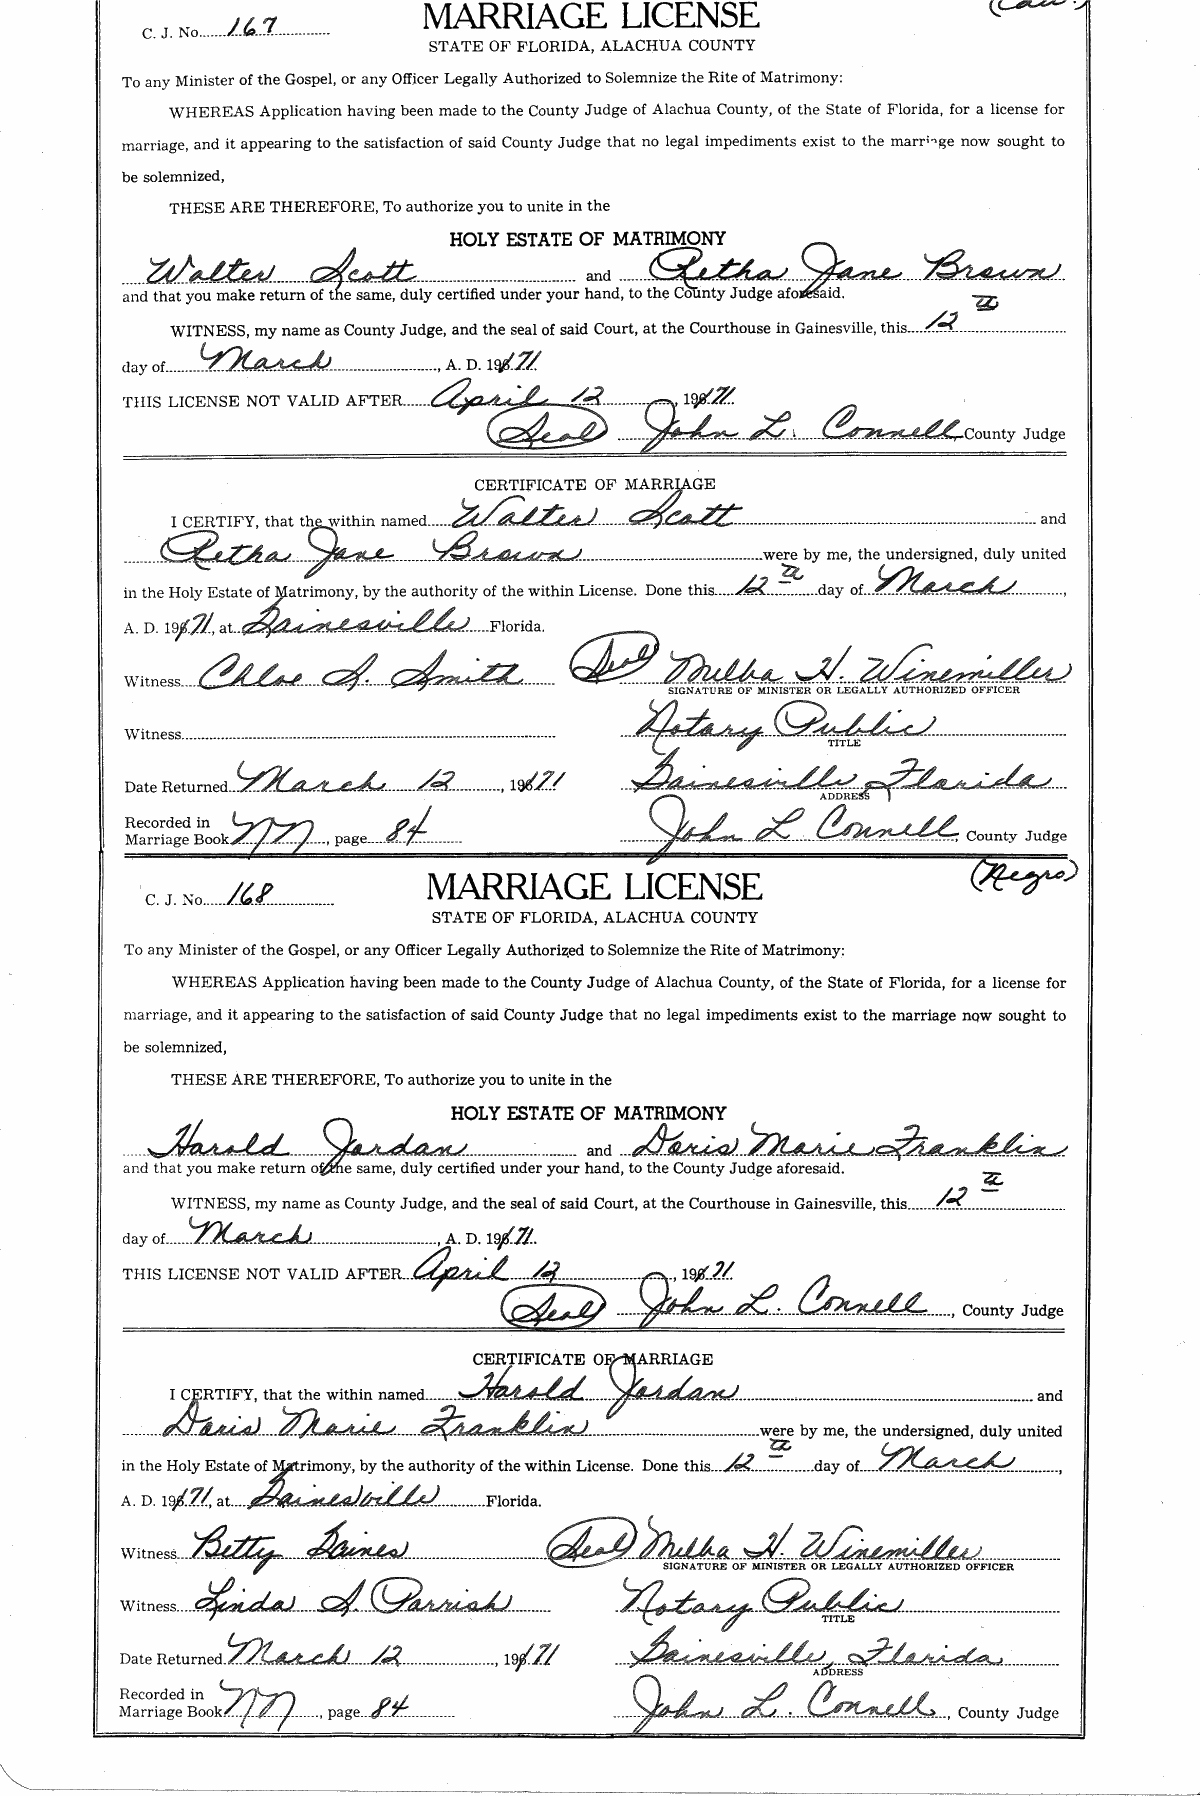 C. J. No. 167 MARRIAGE LICENSE
STATE OF FLORIDA, ALACHUA COUNTY
To any Minister of the Gospel, or any Officer Legally Authorized to Solemnize the Rite of Matrimony:
WHEREAS Application having been made to the County Judge of Alachua County, of the State of Florida, for a license for
marriage, and it appearing to the satisfaction of said County Judge that no legal impediments exist to the marriage now sought to
be solemnized,
THESE ARE THEREFORE, To authorize you to unite in the
HOLY ESTATE OF MATRIMONY
Walter Scott and Retha Jane Brown
and that you make return of the same, duly certified under your hand, to the County Judge aforesaid.
WITNESS, my name as County Judge, and the seal of said Court, at the Courthouse in Gainesville, this 12th
day of March, A. D. 1971.
THIS LICENSE NOT VALID AFTER April 12, 1971.
(Seal) John L. Connell County Judge
CERTIFICATE OF MARRIAGE
I CERTIFY, that the within named Walter Scott and
Retha Jane Brown were by me, the undersigned, duly united
in the Holy Estate of Matrimony, by the authority of the within License. Done this 12th day of March,
A. D. 1971, at Gainesville Florida.
Witness Chloe S. Smith (Seal) Melba H. Winemiller
SIGNATURE OF MINISTER OR LEGALLY AUTHORIZED OFFICER
Witness Notary Public
TITLE
Date Returned March 12, 1971 Gainesville, Florida
ADDRESS
Recorded in
Marriage Book NN, page 84 John L. Connell, County Judge
(Negro)
C. J. No. 168 MARRIAGE LICENSE
STATE OF FLORIDA, ALACHUA COUNTY
To any Minister of the Gospel, or any Officer Legally Authorized to Solemnize the Rite of Matrimony:
WHEREAS Application having been made to the County Judge of Alachua County, of the State of Florida, for a license for
marriage, and it appearing to the satisfaction of said County Judge that no legal impediments exist to the marriage now sought to
be solemnized,
THESE ARE THEREFORE, To authorize you to unite in the
HOLY ESTATE OF MATRIMONY
Harold Jordan and Doris Marie Franklin
and that you make return of the same, duly certified under your hand, to the County Judge aforesaid.
WITNESS, my name as County Judge, and the seal of said Court, at the Courthouse in Gainesville, this 12th
day of March, A. D. 1971.
THIS LICENSE NOT VALID AFTER April 12, 1971.
(Seal) John L. Connell, County Judge
CERTIFICATE OF MARRIAGE
I CERTIFY, that the within named Harold Jordan and
Doris Marie Franklin were by me, the undersigned, duly united
in the Holy Estate of Matrimony, by the authority of the within License. Done this 12th day of March,
A. D. 1971, at Gainesville Florida.
Witness Betty Gaines (Seal) Melba H. Winemiller
SIGNATURE OF MINISTER OR LEGALLY AUTHORIZED OFFICER
Witness Linda S. Parrish Notary Public
TITLE
Date Returned March 12, 1971 Gainesville, Florida
ADDRESS
Recorded in
Marriage Book NN, page 84 John L. Connell, County Judge